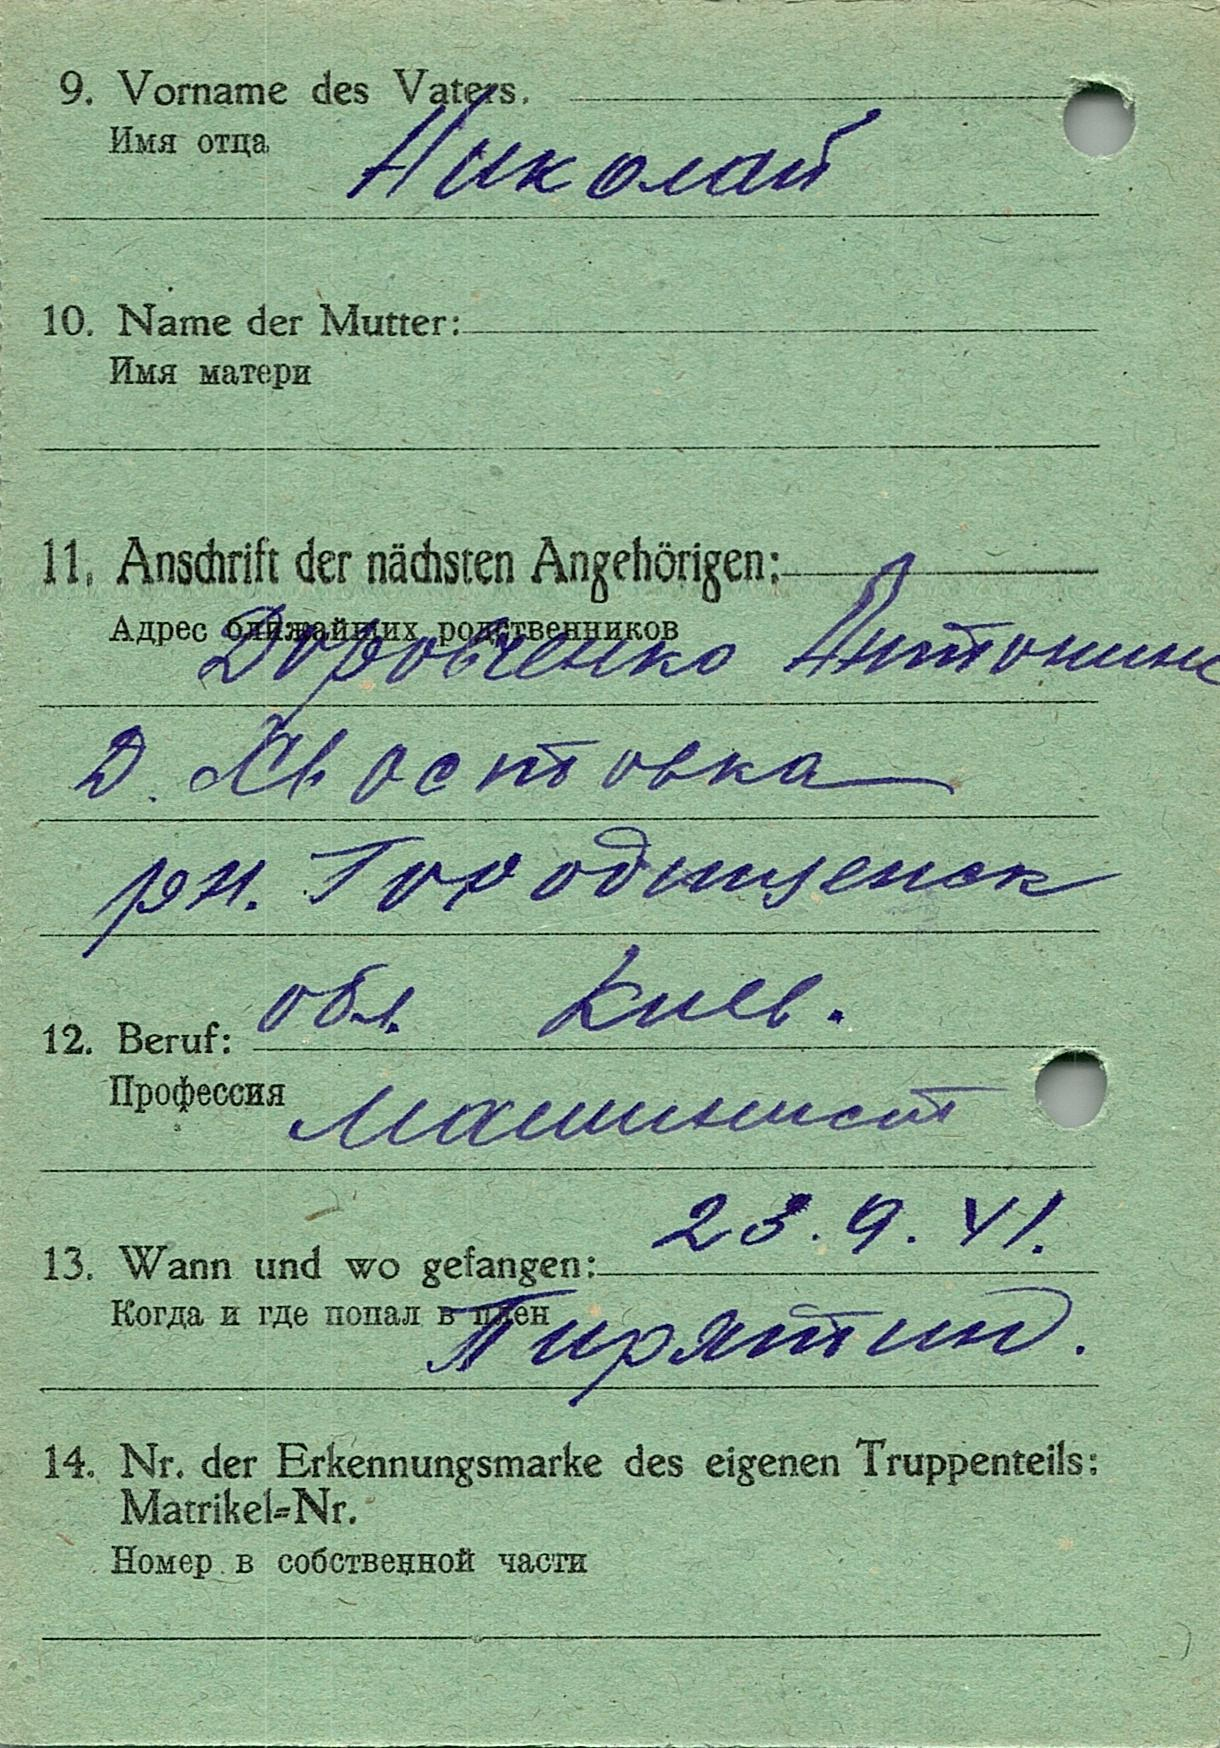 9. Vorname des Vaters.
Имя отца
Николай
10. Name der Mutter:
Имя матери
11. Anschrift der nächsten Angehörigen:
Адрес ближайших родственников
Доровченко Антонина
Д. Хвостовка
рн. Городищенск
обл. Киев.
12. Beruf:
Профессия
Машинист
23.9.41.
13. Wann und wo gefangen:
Когда и где попал в плен
Пирятин.
14. Nr. der Erkennungsmarke des eigenen Truppenteils:
Matrikel=Nr.
Номер в собственной части